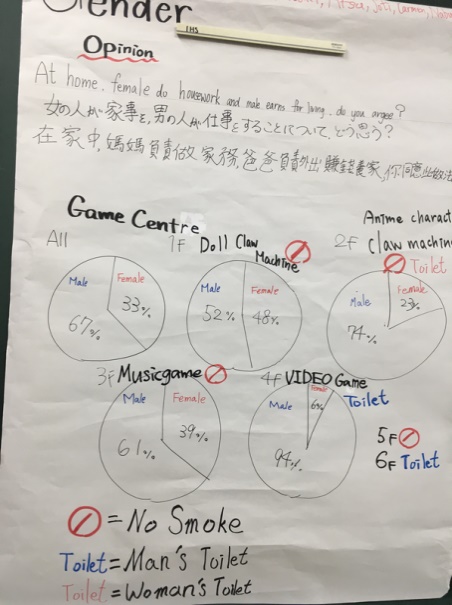 Gender
Opinion
At home. female do housework and male earns for living. do you argee?
女の人が家事を,男の人が仕事をすることについて,どう思う?
在家中,媽媽負責做家務,爸爸負責外出賺錢養家,你同意此做法
Game Centre
All
Male
Female
67%
33%
1F Doll Claw Machine
Male
Female
52%
48%
Anime charact
2F Claw machin
Toilet
Male
Female
74%
23%
3F Musicgame
Male
Female
61%
39%
4F VIDEO Game
Toilet
Male
Female
94%
6%
5F
6F Toilet
= No Smoke
Toilet = Man's Toilet
Toilet = Woman's Toilet